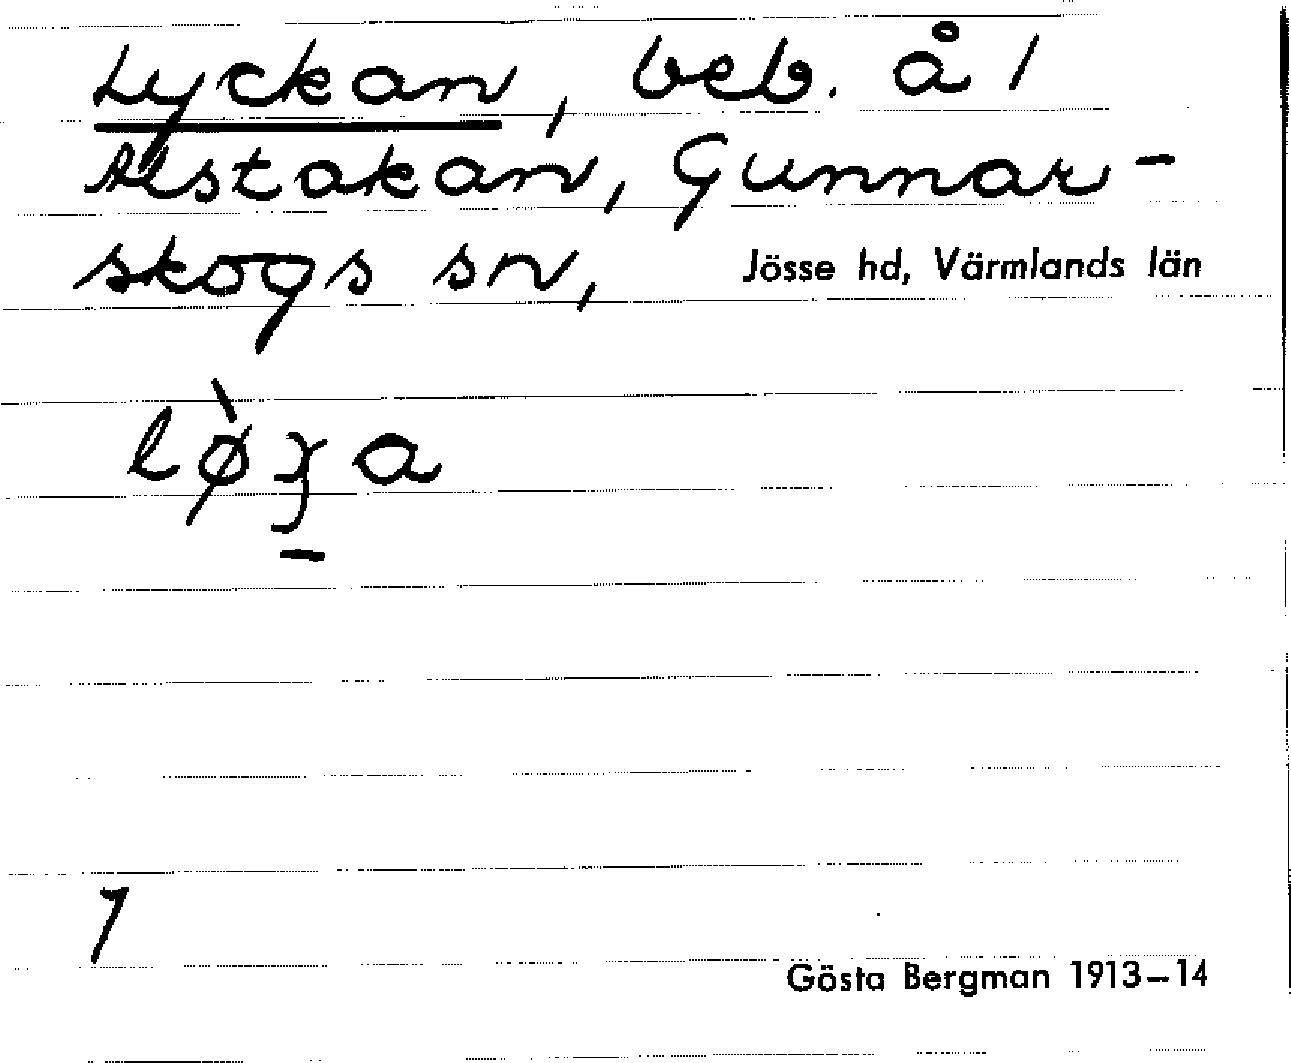 Lyckan, beb. å 1
Alstakan, Gunnar-
skogs sn, Jösse hd, Värmlands län
7
Gösta Bergman 1913–14